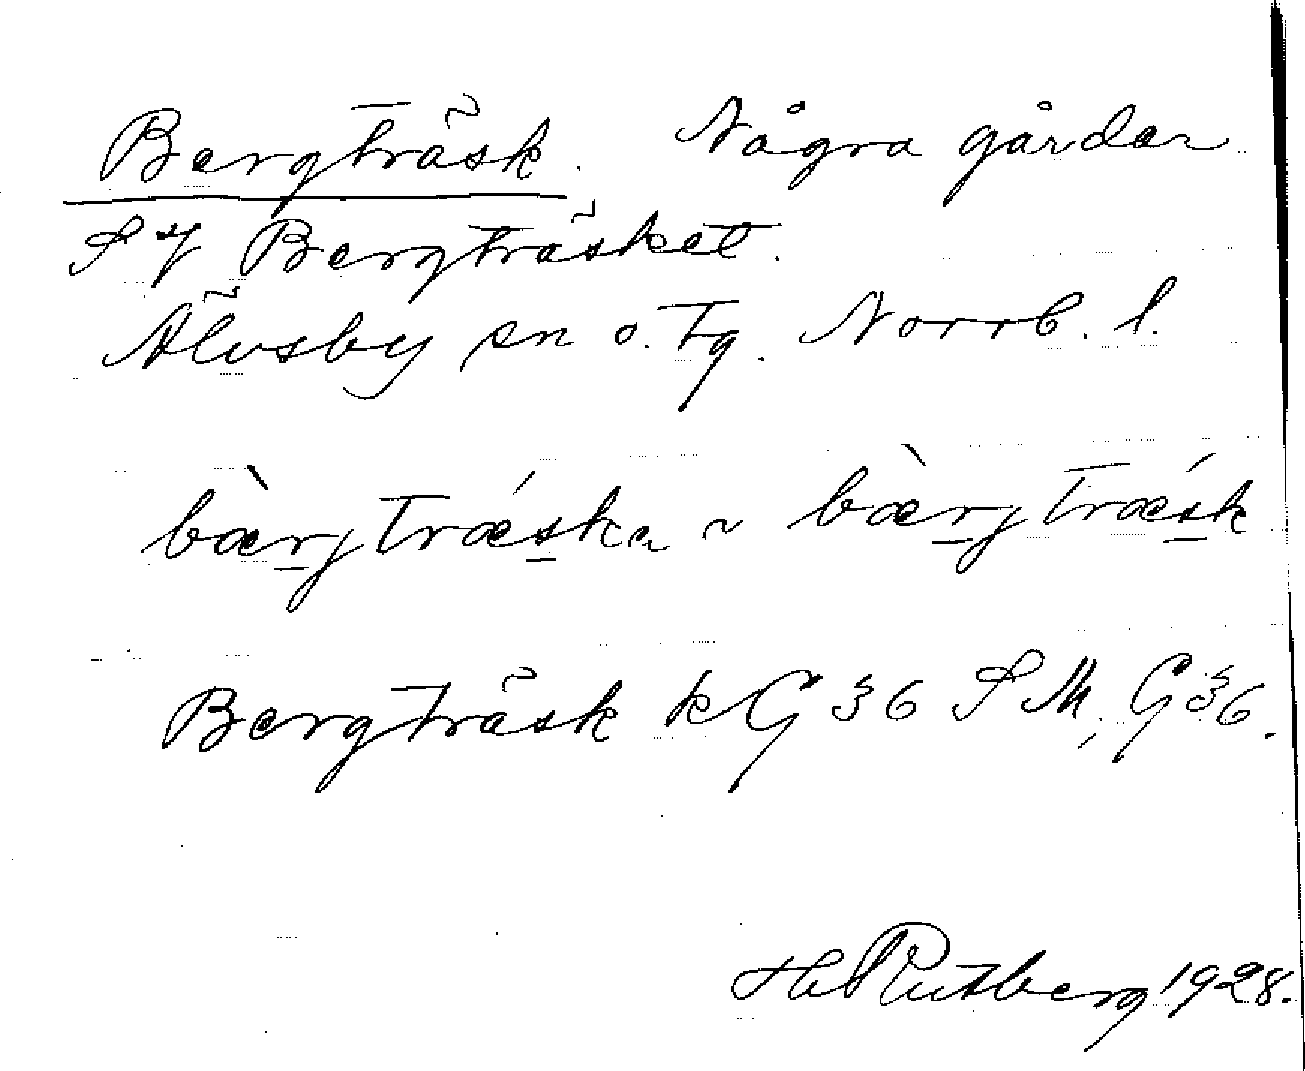 Bergträsk. Några gårdar
S Ɣ Bergträsket.
Älvsby sn o. Tg. Norrb. l.
bærjtræska ~ bærjtræsk
Bergträsk k G 36 S M, G 36.
H Rutberg 1928.